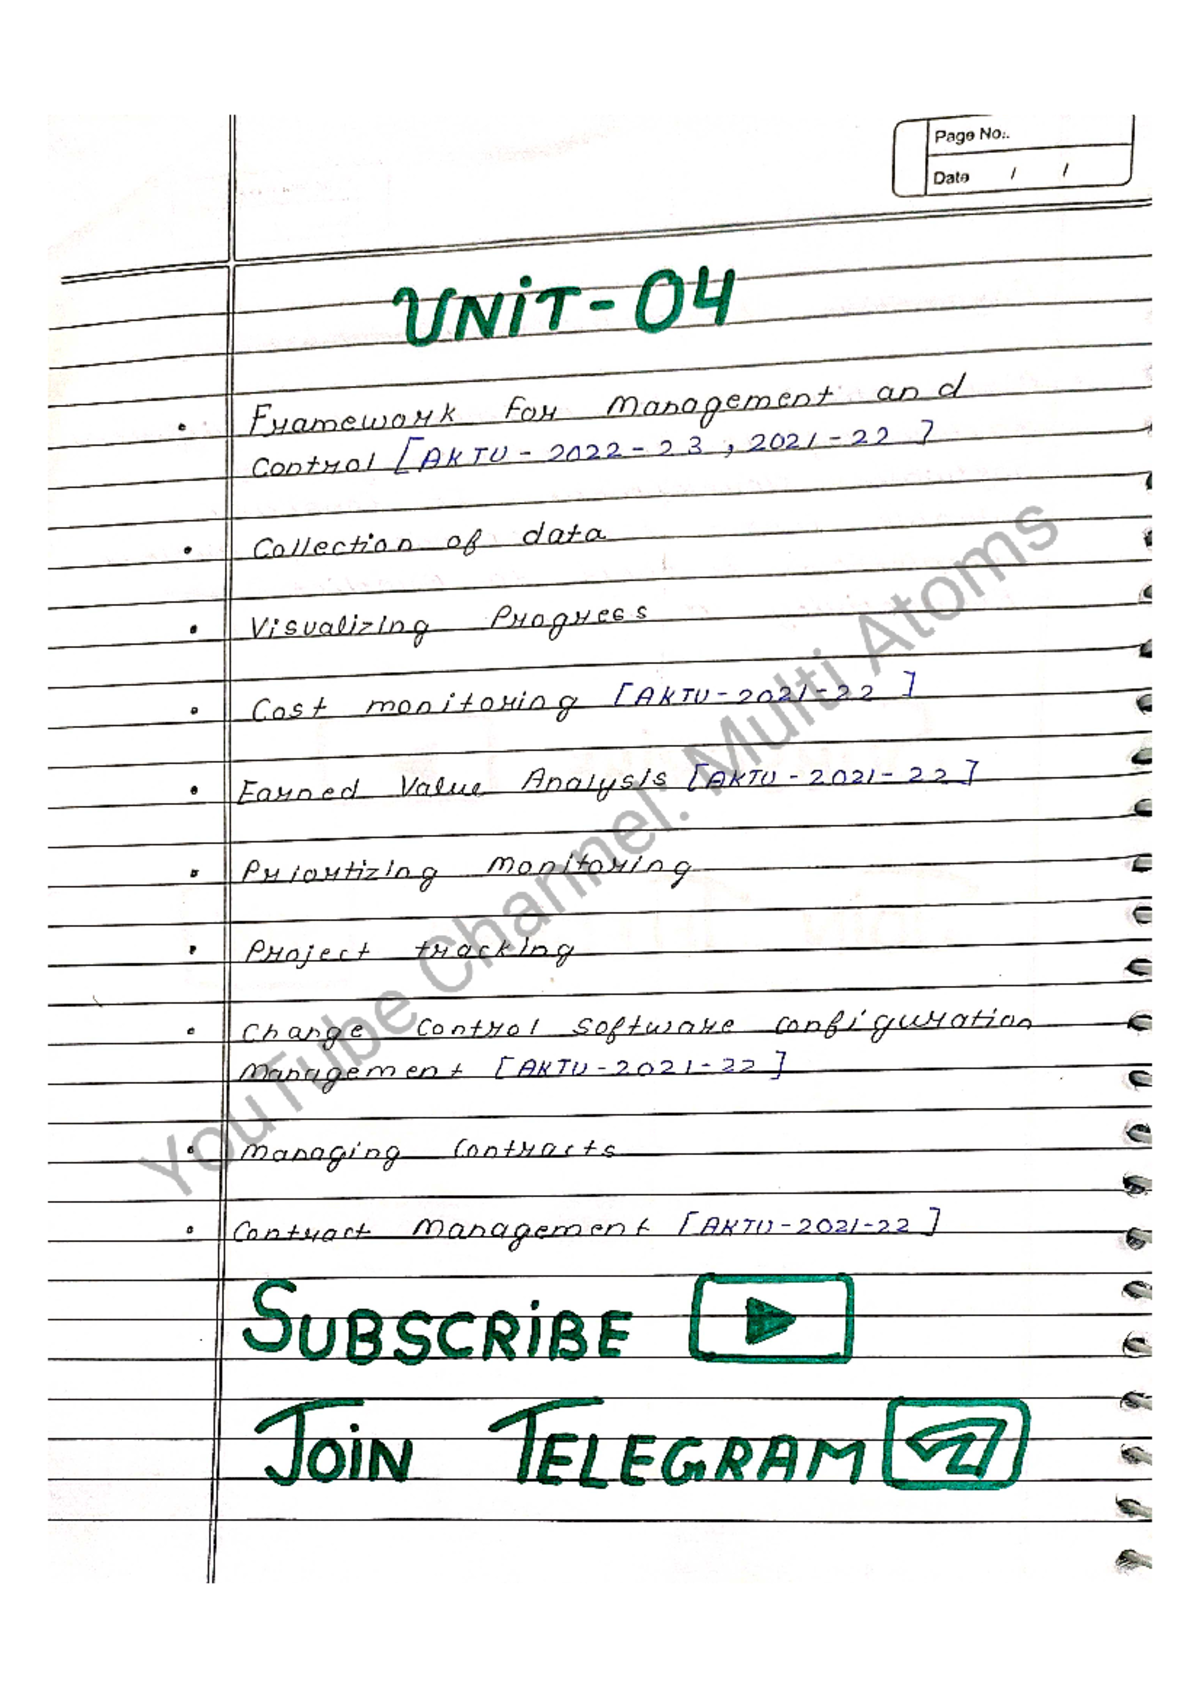 Page No.:
Date / /
UNiT-04
• Framework For Management and
Control [AKTU - 2022-23, 2021-22]
• Collection of data
• Visualizing Progress
• Cost monitoring [AKTU-2021-22]
• Earned Value Analysis [AKTU-2021-22]
• Priortizing monitoring
• Project tracking
• Change Control Software Configuration
Management [AKTU-2021-22]
• Managing Contracts
• Contract Management [AKTU-2021-22]
SUBSCRiBE
JOiN TELEGRAM
YouTube Channel: Multi Atoms